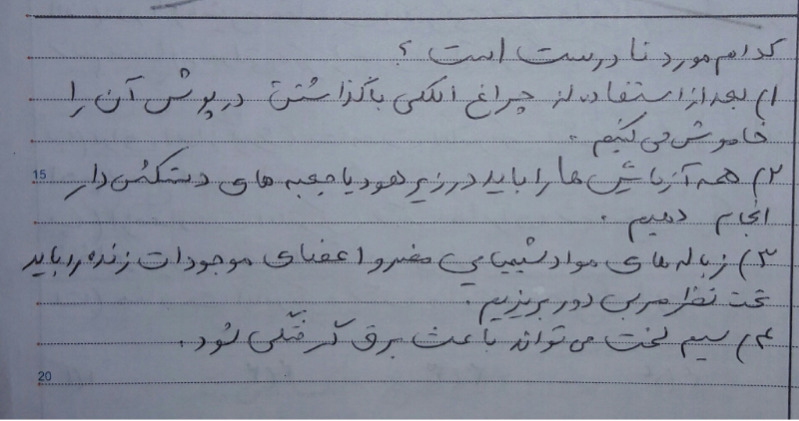 کدام مورد نادرست است ؟
۱) بعد از استفاده از چراغ الکلی با گذاشتن درپوش آن را
خاموش می کنیم .
۲) همه آزمایش ها را باید در زیر هود یا جعبه های دستکش دار
15
انجام دهیم .
۳) زباله های مواد شیمیایی مضر و اعضای موجودات زنده را باید
تحت نظر مربی دور بریزیم .
۴) سیم لخت می تواند باعث برق گرفتگی شود .
20